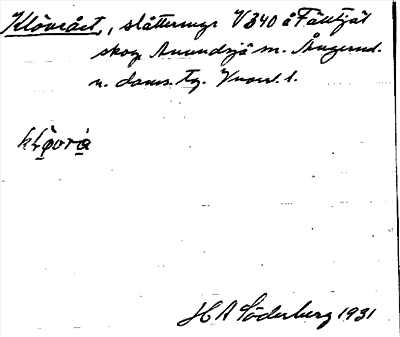 Klövrået, slåttermyr V340 å Fälltjäl
skog Anundsjö sn. Ångerml.
n. doms. tg. Vnorrl. l.
H A Söderberg 1931